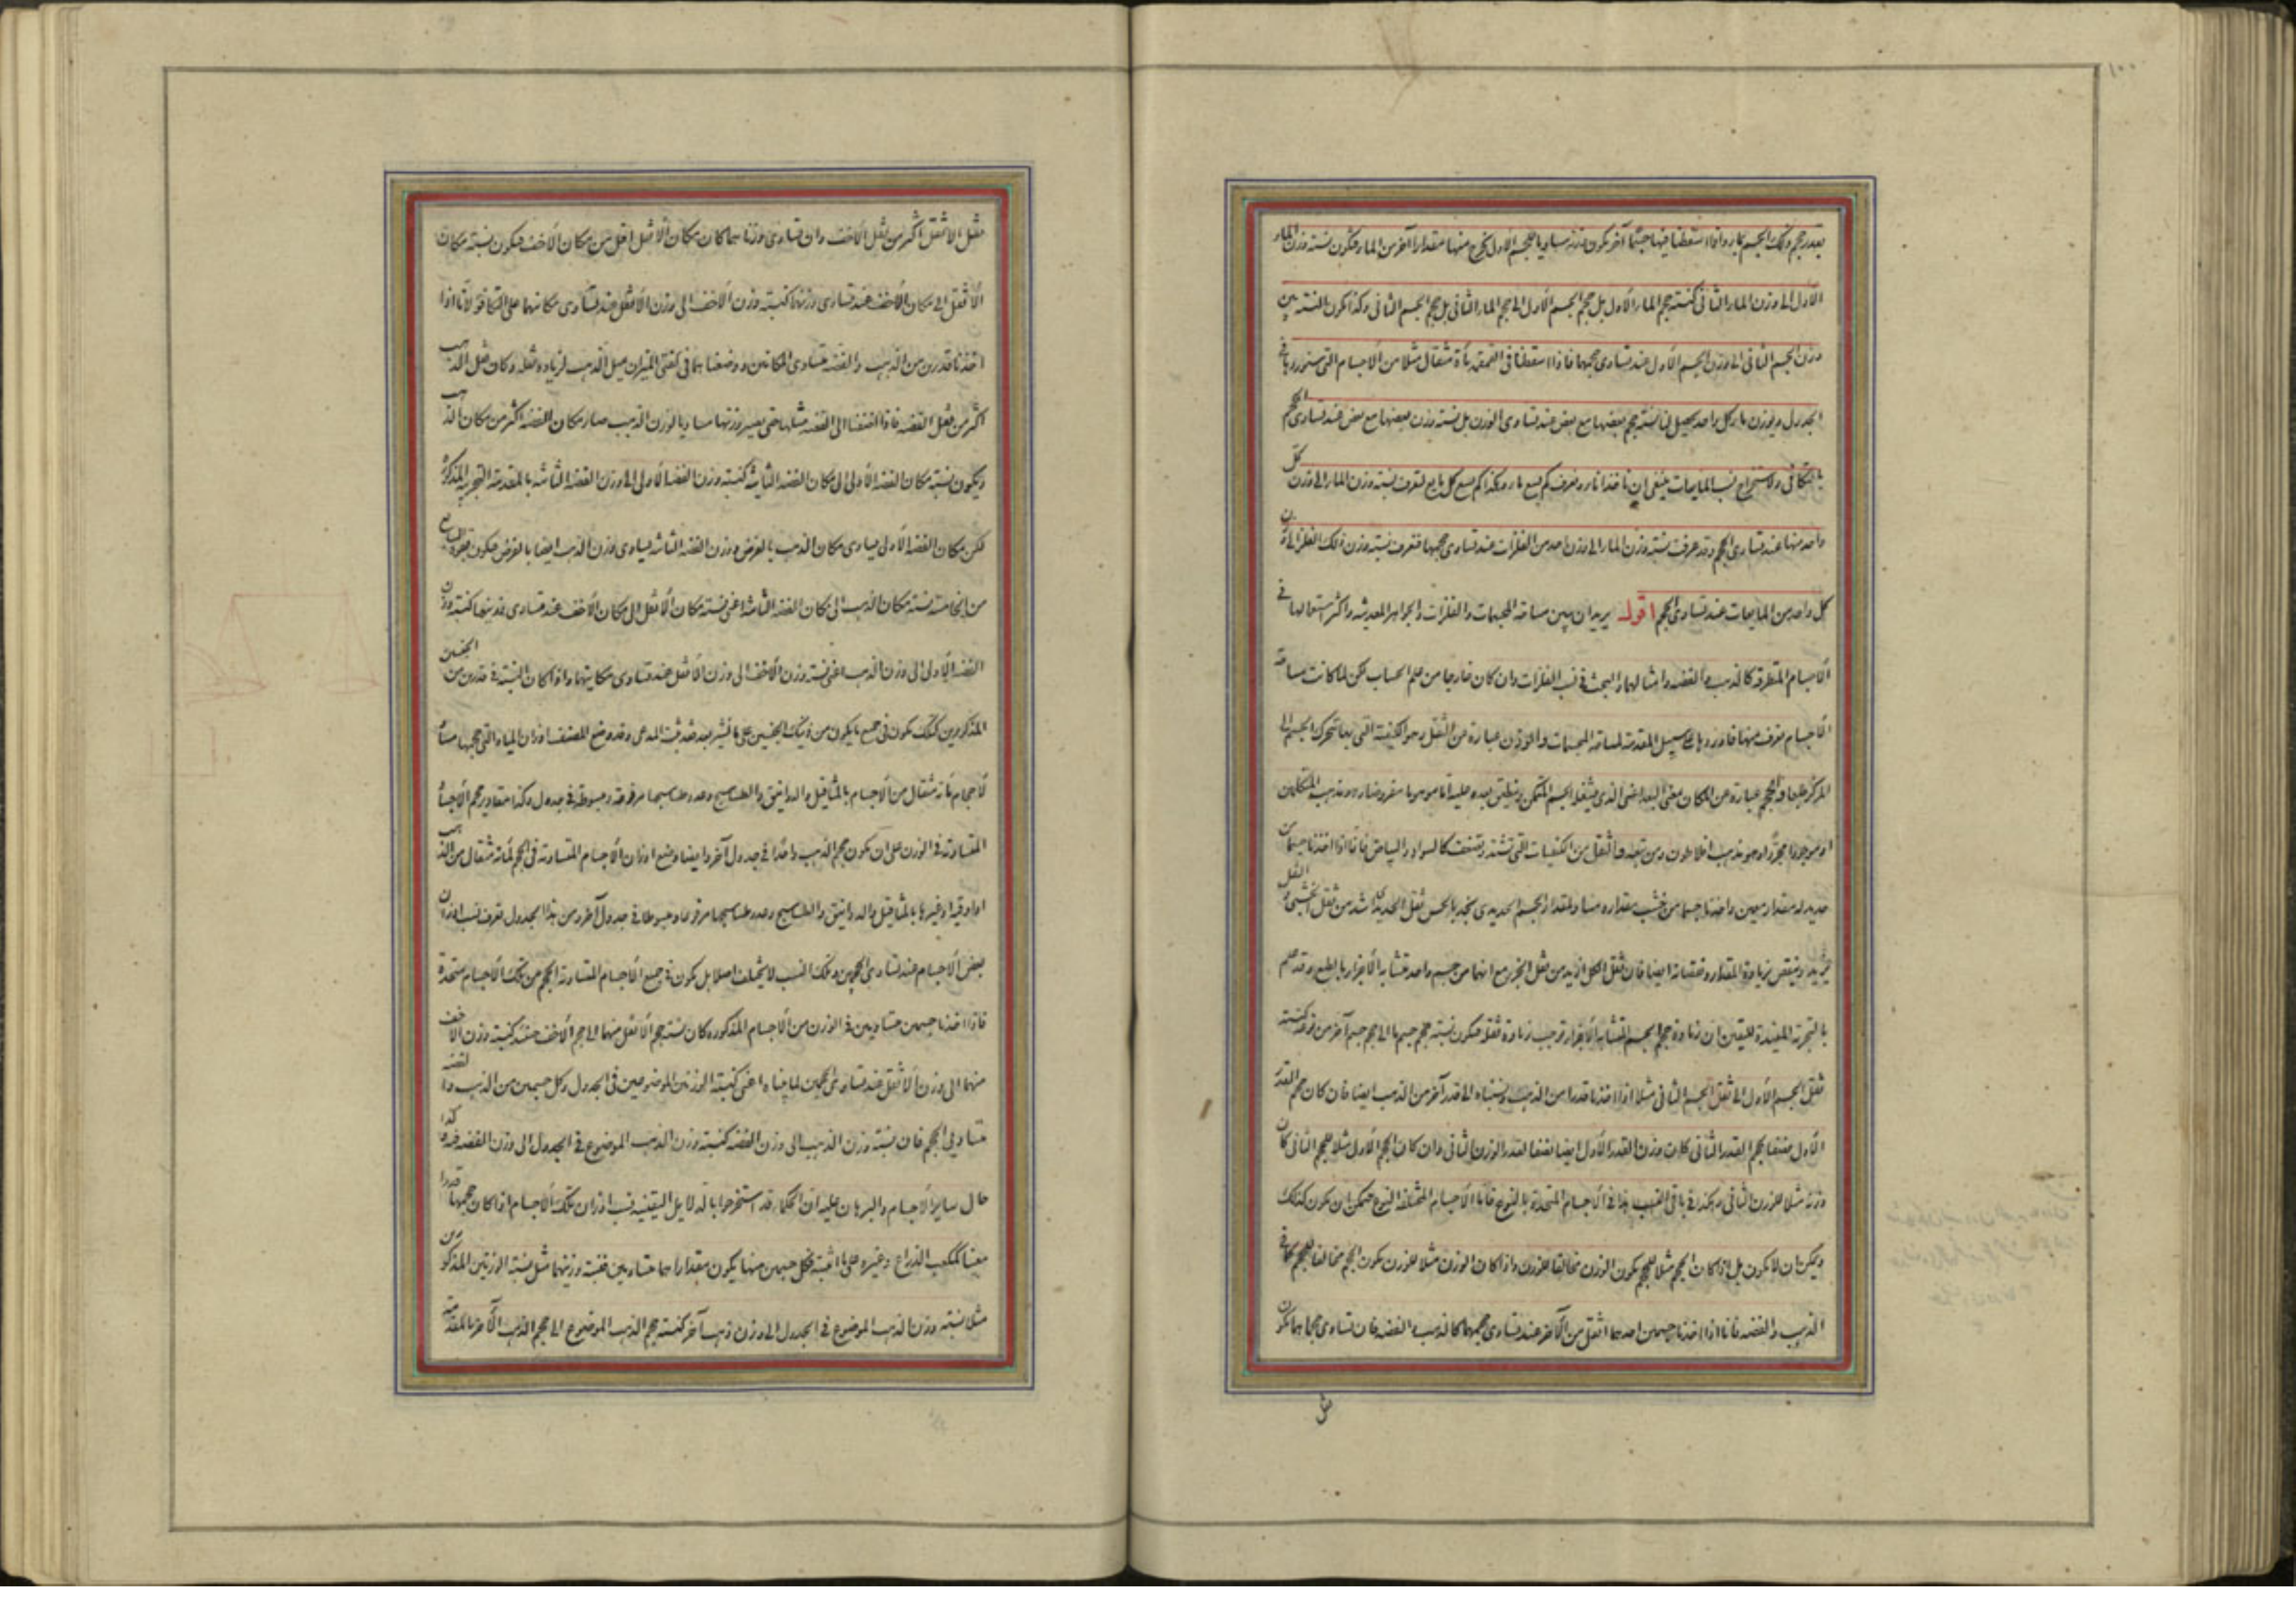 بقدر حجم ذلك الجسم بماء واذا اسقطنا فيها جسما آخر يكون وزنه مساويا للجسم الاول يخرج منها مقدارا آخر من الماء فيكون نسبة وزن الماء
الاول الى وزن الماء الثانى كنسبة حجم الماء الاول بل حجم الجسم الاول الى حجم الماء الثانى بل حجم الجسم الثانى وكذا يكون النسبة بين
وزن الجسم الثانى الى وزن الجسم الاول عند تساوى حجمهما فاذا اسقطنا فى القمقمة مأة مثقال مثلا من الاجسام التى سنوردها فى
الجدول ويوزن ماء كل واحد يحصل لنا نسبة حجم بعضها مع بعض عند تساوى الوزن بل نسبة وزن بعضها مع بعض عند تساوى الحجم
بالتكافى ولاستخراج نسب المايعات ينبغى ان ناخذ اناء ونعرف كم يسع ماء وهكذا كم يسع كل مايع لتعرف نسبة وزن الماء الى وزن كل
واحد منها عند تساوى الحجم وقد عرفت نسبة وزن الماء الى وزن احد من الفلزات عند تساوى حجمهما فتعرف نسبة وزن ذلك الفلز الى وزن
كل واحد من المايعات عند تساوى الحجم اقول يريد ان يبين مساحة المجسمات والفلزات والجواهر المعدنية واكثر استعمالها فى
الاجسام المتطرقة كالذهب والفضة وامثالهما والبحث فى نسب الفلزات وان كان خارجا من علم الحساب لكن لما كانت مساحة
الاجسام تعرف منها فاوردها على سبيل المقدمة لمساحة المجسمات والوزن عبارة عن الثقل وهو الكيفية التى بها يتحرك الجسم الى
المركز طبعا والحجم عبارة عن المكان معنى البعد اعنى الذى يشغله الجسم المتمكن وينطبق بعده عليه اما موهوما مفروضا وهو مذهب المتكلمين
او موجودا مجردا وهو مذهب افلاطون ومن تبعه والثقل من الكيفيات التى تشتد وتضعف كالسواد والبياض فانا اذا اخذنا جسما من
حديد له مقدار معين واخذنا جسما من خشب مقداره مساو لمقدار الجسم الحديدى نجد بالحس ثقل الحديد اشد من ثقل الخشبى والثقل
يزيد وينقص بزيادة المقدار ونقصانه ايضا فان ثقل الكل ازيد من ثقل الجزء مع انهما من جسم واحد متشابه الاجزاء بالطبع وقد علم
بالتجربة المفيدة لليقين ان زيادة حجم الجسم المتشابه الاجزاء توجب زيادة ثقله فيكون نسبة حجم جسم ما الى حجم جسم آخر من نوعه كنسبة
ثقل الجسم الاول الى ثقل الجسم الثانى مثلا اذا اخذنا قدرا من الذهب ونسبناه الى قدر آخر من الذهب ايضا فان كان حجم القدر
الاول نصفا لحجم القدر الثانى كان وزن القدر الاول ايضا نصفا لقدر الوزن الثانى وان كان الحجم الاول مثلا للحجم الثانى كان
وزنه مثلا للوزن الثانى وهكذا فى باقى النسب هذا فى الاجسام المتحدة بالنوع فاما الاجسام المختلفة النوع فيمكن ان يكون كذلك
ويمكن ان لا يكون بل اذا كان الحجم مثلا للحجم يكون الوزن مخالفا للوزن واذا كان الوزن مثلا للوزن يكون الحجم مخالفا للحجم كما فى
الذهب والفضة فانا اذا اخذنا جسمين احدهما اثقل من الآخر عند تساوى حجمهما كالذهب والفضة فان تساوى حجماهما يكون
ثقل
ثقل الاثقل اكثر من ثقل الاخف وان تساوى وزناهما كان مكان الاثقل اقل من مكان الاخف فيكون نسبة مكان
الاثقل الى مكان الاخف عند تساوى وزنهما كنسبة وزن الاخف الى وزن الاثقل عند تساوى مكانيهما على التكافؤ لانا اذا
اخذنا قدرين من الذهب والفضة متساوى المكانين ووضعناهما فى كفتى الميزان يميل الذهب لزيادة ثقله وكان ثقل الذهب
اكثر من ثقل الفضة فاذا اضفنا الى الفضة مثلها حتى يصير وزنها مساويا لوزن الذهب صار مكان الفضة اكثر من مكان الذهب
ويكون نسبة مكان الفضة الاولى الى مكان الفضة الثانية كنسبة وزن الفضة الاولى الى وزن الفضة الثانية بالمقدمة التجربية المذكورة
لكن مكان الفضة الاولى يساوى مكان الذهب بالفرض ووزن الفضة الثانية يساوى وزن الذهب ايضا بالفرض فيكون بقوة السابع
من الخامسة نسبة مكان الذهب الى مكان الفضة الثانية اعنى نسبة مكان الاثقل الى مكان الاخف عند تساوى وزنيهما كنسبة وزن
الفضة الاولى الى وزن الذهب اعنى نسبة وزن الاخف الى وزن الاثقل عند تساوى مكانيهما واذا كان النسبة فى قدرين من الجنسين
المذكورين كذلك يكون فى جميع ما يكون من ذينك الجنسين على ما نبين بعد فثبت المدعى وقد وضع المصنف اوزان المياه التى حجمها مساو
لاحجام مأة مثقال من الاجسام بالمثاقيل والدوانيق والطساسيج وعدد طساسيجها مرفوعة ومبسوطة فى جدول وكذا مقادير حجم الاجسام
المتساوية فى الوزن على ان يكون حجم الذهب واحدا فى جدول آخر وايضا وضع اوزان الاجسام المتساوية فى الحجم لمأة مثقال من الذهب
او اوقية او غيرها بالمثاقيل والدوانيق والطساسيج وعدد طساسيجها مرفوعا ومبسوطا فى جدول آخر ومن هذا الجدول تعرف نسب اوزان
بعض الاجسام عند تساوى الحجمين وتلك النسب لا يختلف اصلا بل يكون فى جميع الاجسام المتساوية الحجم من تلك الاجسام متحدة
فاذا اخذنا جسمين متساويين فى الوزن من الاجسام المذكورة كان نسبة حجم الاثقل منهما الى حجم الاخف منهما كنسبة وزن الاخف
منهما الى وزن الاثقل عند تساوى الحجمين لما بيناه اعنى كنسبة الوزنين الموضوعين فى الجدول وكل جسمين من الذهب والفضة
متساويى الحجم فان نسبة وزن الذهب الى وزن الفضة كنسبة وزن الذهب الموضوع فى الجدول الى وزن الفضة فيه وكذا
حال ساير الاجسام والبرهان عليه ان الحكماء قد استخرجوا بالدلايل اليقينية نسب اوزان تلك الاجسام اذا كان حجمها قدرا
معينا كمكعب الذراع وغيره على ما اثبته فكل جسمين منها يكون مقداراهما متساويين فنسبة وزنيهما مثل نسبة الوزنين المذكورين
مثلا نسبة وزن الذهب الموضوع فى الجدول الى وزن ذهب آخر كنسبة حجم الذهب الموضوع الى حجم الذهب الآخر بالمقدمة